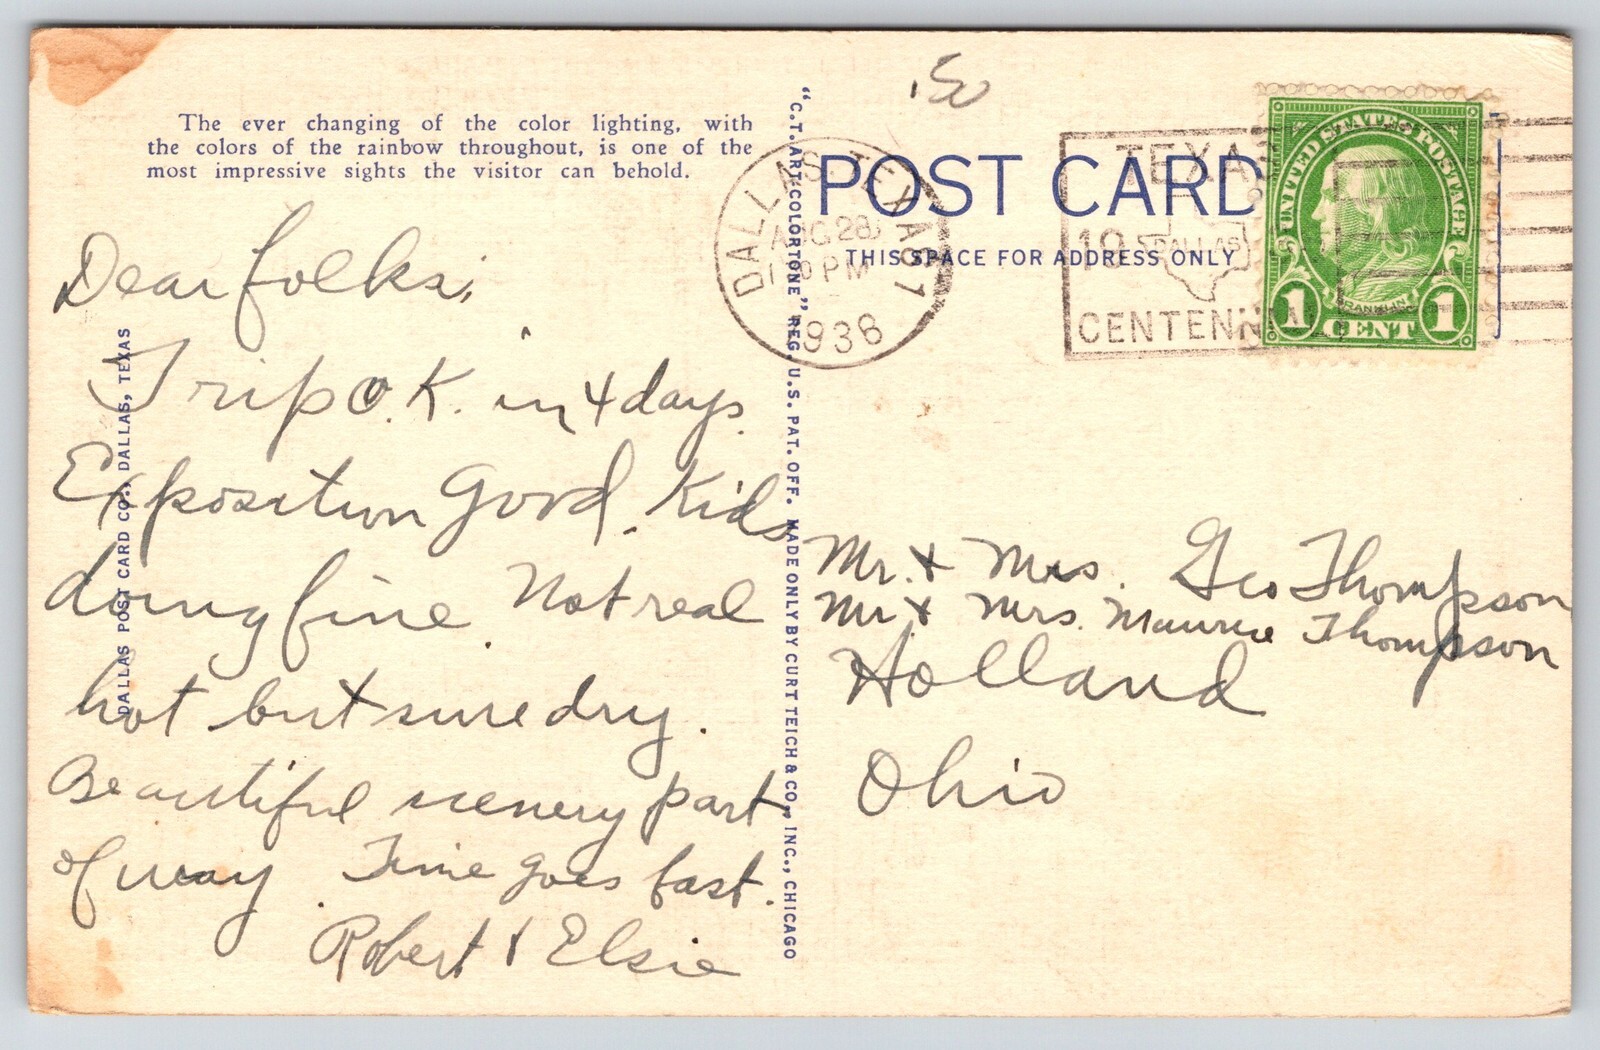 .50
The ever changing of the color lighting, with
the colors of the rainbow throughout, is one of the
most impressive sights the visitor can behold.
Dear folks;
Trip O.K. in 4 days.
Exposition good. Kids
doing fine. Not real
hot but sure dry.
Beautiful scenery part
of way. Time goes fast.
Robert & Elsie
DALLAS POST CARD CO., DALLAS, TEXAS
"C.T. ART-COLORTONE" REG. U.S. PAT. OFF. MADE ONLY BY CURT TEICH & CO., INC., CHICAGO
POST CARD
THIS SPACE FOR ADDRESS ONLY
DALLAS, TEXAS
AUG 28
PM
1
1936
TEXAS
DALLAS
CENTENNIAL
UNITED STATES POSTAGE
FRANKLIN
1 CENT 1
Mr. & Mrs. Geo Thompson
Mr & Mrs. Maurice Thompson
Holland
Ohio